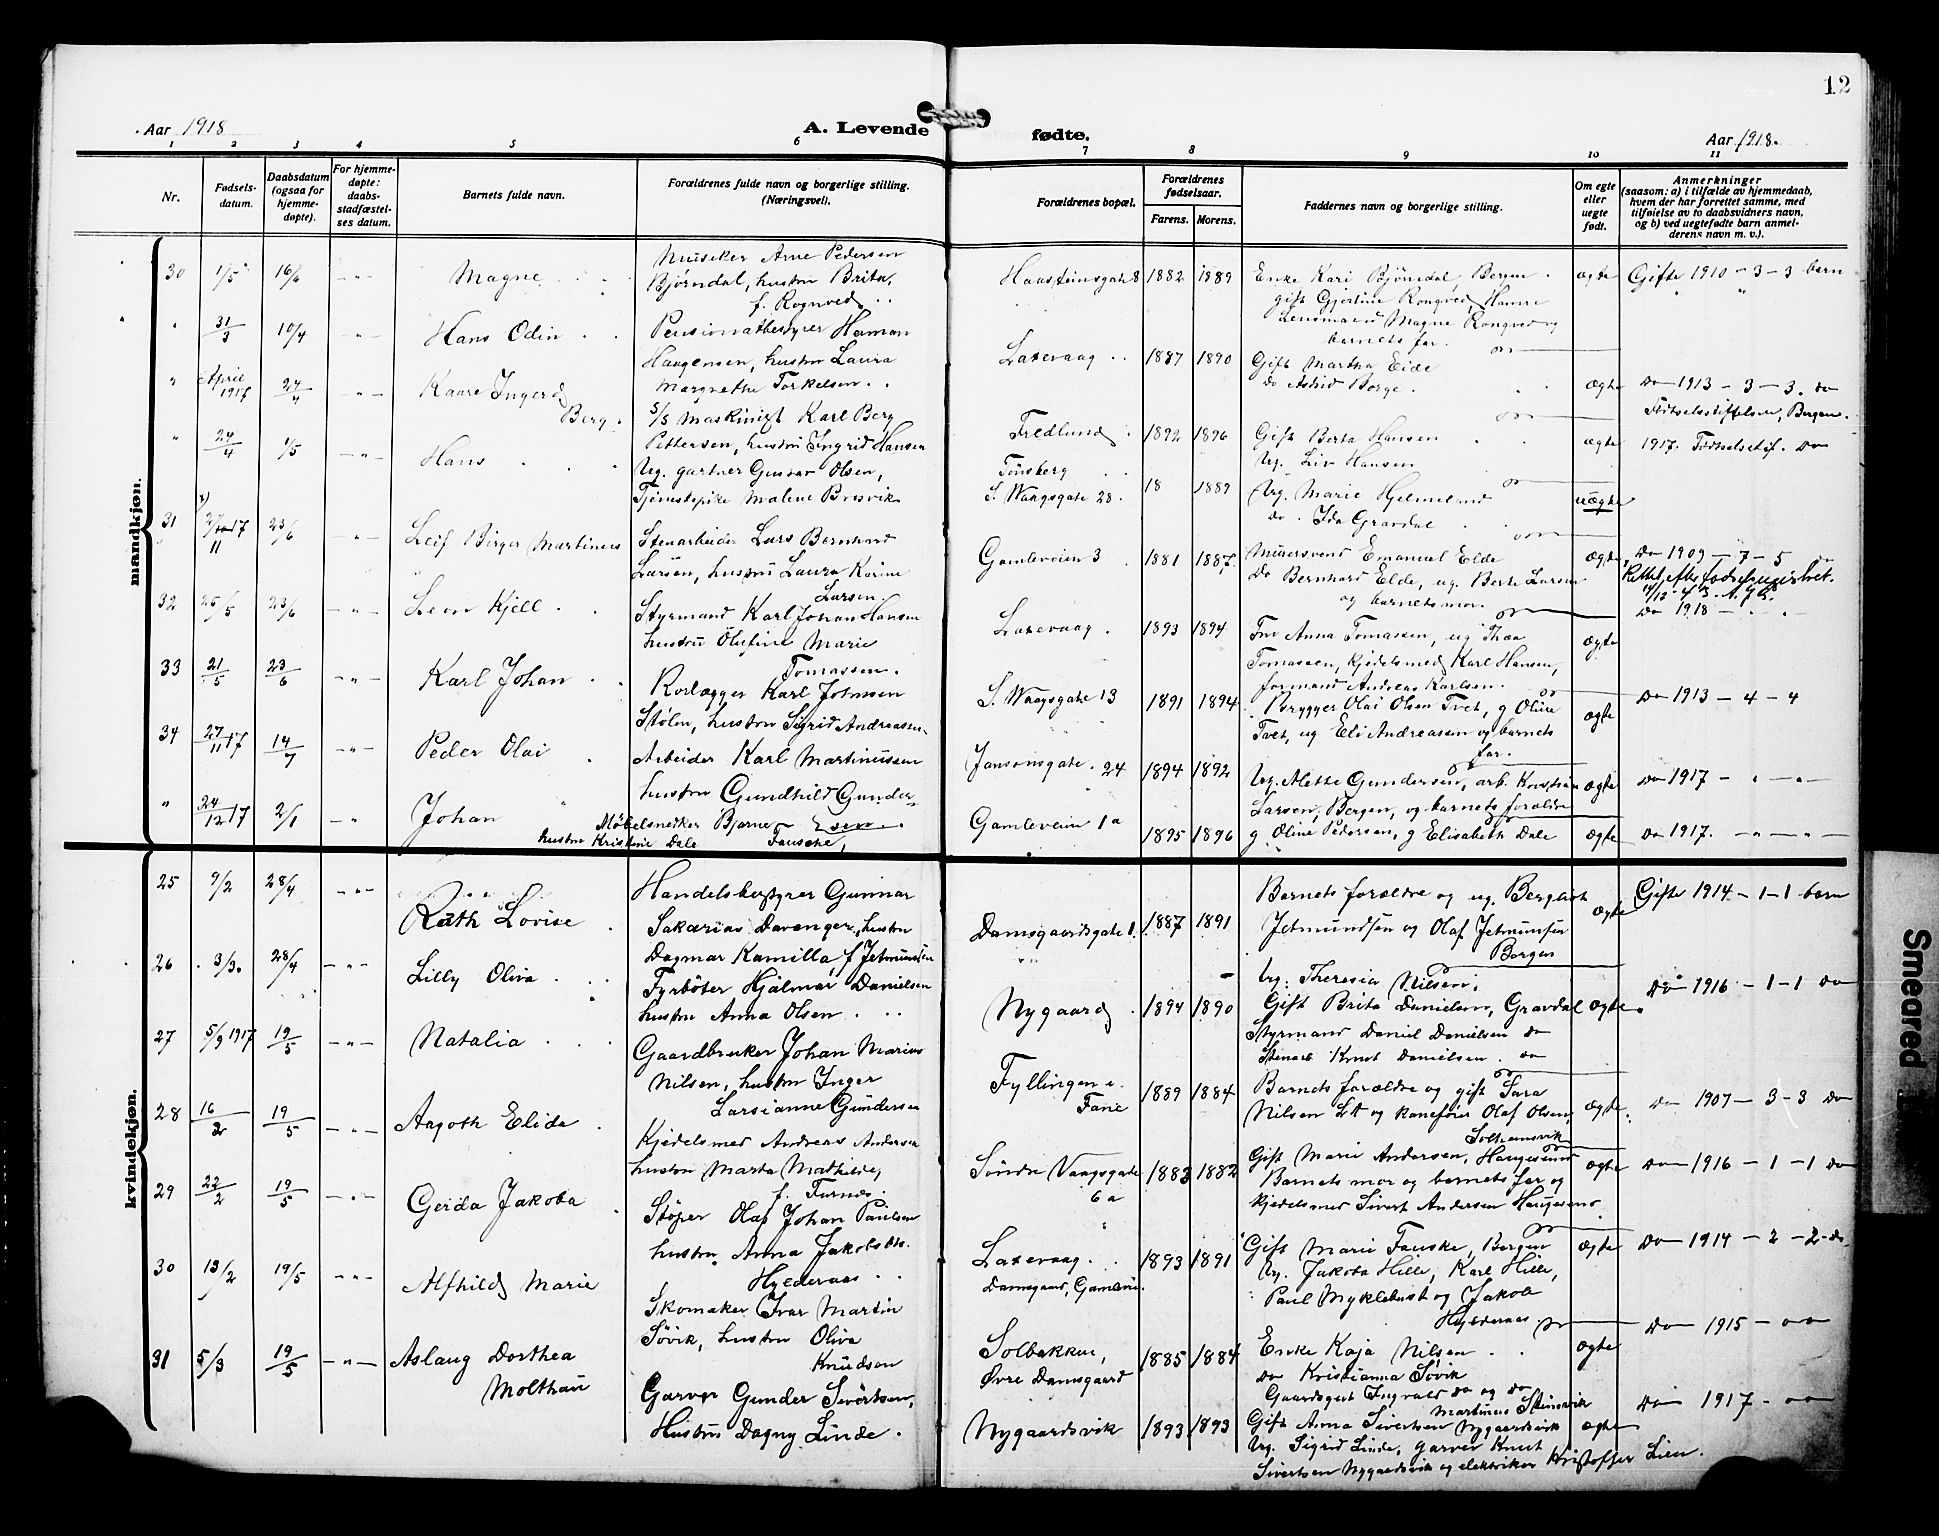 12
Aar 1918
A. Levende
fødte.
Aar 1918.
1 2 3 4 5 6 7 8 9 10 11
Nr.
Fødsels-
datum.
Daabsdatum
(ogsaa for
hjemme-
døpte).
For hjemme-
døpte:
daabs-
stadfæstel-
ses datum.
Barnets fulde navn.
Forældrenes fulde navn og borgerlige stilling.
(Næringsvei).
Forældrenes bopæl.
Forældrenes
fødselsaar.
Farens.
Morens.
Faddernes navn og borgerlige stilling.
Om egte
eller
uegte
født.
Anmerkninger
(saasom: a) i tilfælde av hjemmedaab,
hvem der har forrettet samme, med
tilføielse av to daabsvidners navn,
og b) ved uegtefødte barn anmel-
derens navn m. v.).
mandkjøn.
30 1/5 16/6 -"- Magne
Musiker Arne Pedersen
Bjørndal, hustru Brita,
f. Rognved
Haasteinsgate 8 1882 1889
Enke Kari Bjørndal, Bergen
gift Gjertine Rongved, Hamre
Lensmand Magne Rongved og
barnets far.
ægte
Gifte 1910 - 3 - 3 barn
" 31/3 10/4 -"- Hans Odin
Pensionatbestyrer Herman
Haagensen, hustru Laura
Margrethe Torkelsen
Laxevaag 1887 1890
Gift Martha Eide
do Astrid Borge
ægte
Do 1913 - 3 - 3. do
Fødselsstiftelsen, Bergen.
" April 1917 24/4 -"- Kaare Ingerd
Berg
S/S Maskinist Karl Berg
Pettersen, hustru Ingrid Hansen
Fredlund 1892 1896
Gift Berta Hansen
Ug. Liv Hansen
ægte
1917. Fødselsstif. do
" 24/4 1/5 -"- Hans
Ug. gartner Gustav Olsen,
Tjenestepike Maline Bresvik
Tønsberg
S. Waagsgate 28. 18 1889
Ug. Marie Hjelmeland
do. Ida Gravdal
uægte
31 2/11 17 23/6 -"- Leif Birger Martinus
Stenarbeider Lars Bernhard
Larsen, hustru Laura Karine
Larsen.
Gamleveien 3 1881 1887
Murersvend Emanuel Elde
Do Bernhard Elde, ug. Berte Larsen
og barnets mor.
ægte
Do 1909 - 7 - 5 do
Rettet efter fødselsregistret.
32 25/5 23/6 -"- Leon Kjell
Styrmand Karl Johan Hansen
hustru Olufine Marie
Tomassen.
Laxevaag 1893 1894
Fru Anna Tomassen, ug Thea
Tomassen, kjedelsmed Karl Hansen,
formand Andreas Karlsen.
ægte
Do 1918 - " - "
33 21/5 23/6 -"- Karl Johan
Rørlægger Karl Johnsen
Stølen, hustru Sigrid Andreassen
S. Waagsgate 13 1891 1894
Brygger Olai Olsen Tvet, g Oline
Tvet, ug Eli Andreassen og barnets
far.
ægte
Do 1913 - 4 - 4
34 27/11 17 14/7 -"- Peder Olai
Arbeider Karl Martinussen
hustru Gundhild Gunder-
sen.
Jansonsgate. 24 1894 1892
Ug. Mette Gundersen, arb. Kristian
Larsen, Bergen, og barnets forældre
ægte
Do 1917 - " - " -
" 24/12 17 2/1 -" Johan
Møbelsnedker Bjarne Fauske,
hustru Kristine Dale
Gamleveien 1a 1895 1896
g Oline Pedersen, g Elisabeth Dale
ægte
Do 1917. - " - " -
kvindekjøn.
25 9/2 28/4 -"- Ruth Lovise
Handelsbestyrer Gunnar
Sakarias Davanger, hustru
Dagmar Kamilla, f Jetmundsen
Damsgaardsgate 1. 1887 1891
Barnets forældre og ug. Bergliot
Jetmundsen og Olaf Jetmundsen
Bergen
ægte
Gifte 1914 - 1 - 1 barn
26 3/3. 28/4 -"- Lilly Oliva
Fyrbøter Hjalmar Danielsen
hustru Anna Olsen
Nygaard 1894 1890
Ug. Theresia Nilsen,
Gift Brita Danielsen, Gravdal
Styrmand Daniel Danielsen do
Stenarb Knut Danielsen. do
ægte
Do 1916 - 1 - 1 Do
27 5/9 1917 19/5 -"- Natalia
Gaardbruker Johan Marius
Nilsen, hustru Inger
Larsianne Gundersen
Fyllingen i
Fane 1889 1884
Barnets forældre og gift Sara
Nilsen Litt og kanefører Olaf Olsen,
Solheimsvik
ægte
Do 1907 - 3 - 3 Do
28 16/2 19/5 -"- Aagoth Elida
Kjedelsmed Andreas Andersen
hustru Marta Mathilde,
f. Furnes.
Søndre Vaagsgate
6 a 1883 1882
Gift Marie Andersen, Haugesund
Barnets mor og barnets far og
kjedelsmed Sivert Andersen Haugesund
ægte
Do 1916 - 1 - 1 Do
29 22/2 19/5 -"- Gerda Jakoba
Støper Olaf Johan Paulsen
hustru Anna Jakobsdtr.
Hylderaas
Laxevaag
Damsgaard, Gamlevei. 1893 1891
Gift Marie Fauske, Bergen
Ug. Jakoba Hille, Karl Hille,
Paul Myklebust og Jakob
Hylderaas
ægte
Do 1914 - 2 - 2 - do
30 13/2 19/5 -"- Alfhild Marie
Skomaker Ivar Martin
Søvik, hustru Oliva
Knudsen
Solbakken,
Øvre Damsgaard 1885 1884
Enke Kaja Nilsen
do Kristianna Søvik
Gaardsgut Ingvald do og do
Martinus Steinsvik
ægte
Do 1915 - o o
31 5/3 19/5 -"- Aslaug Dorthea
Molthau
Garver Gunder Sivertsen,
Hustru Dagny Linde.
Nygaardsvik 1893 1893
Gift Anna Sivertsen Nygaardsvik
Ug. Sigrid Linde, garver Knut
Sivertsen Nygaardsvik og elektriker Kristoffer Lien.
ægte
Do 1917 - o o
Smeared